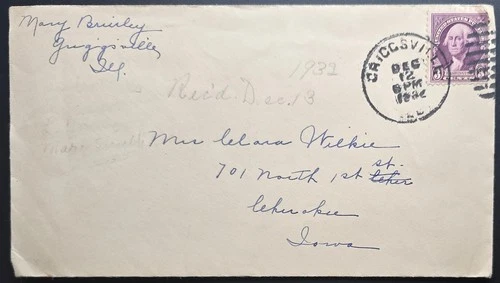 Mary Brierly
Griggsville,
Ill.
1932
Rec'd Dec. 13
GRIGGSVILLE
DEC
12
6 PM
1932
ILL.
3
Mrs Clara Wilkie
701 North 1st st.
Cherokee
Iowa